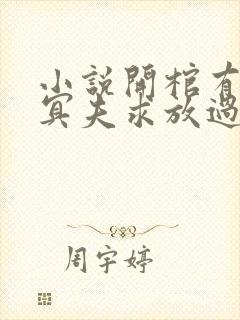 小說開棺有
冥夫求放過
周宇婷